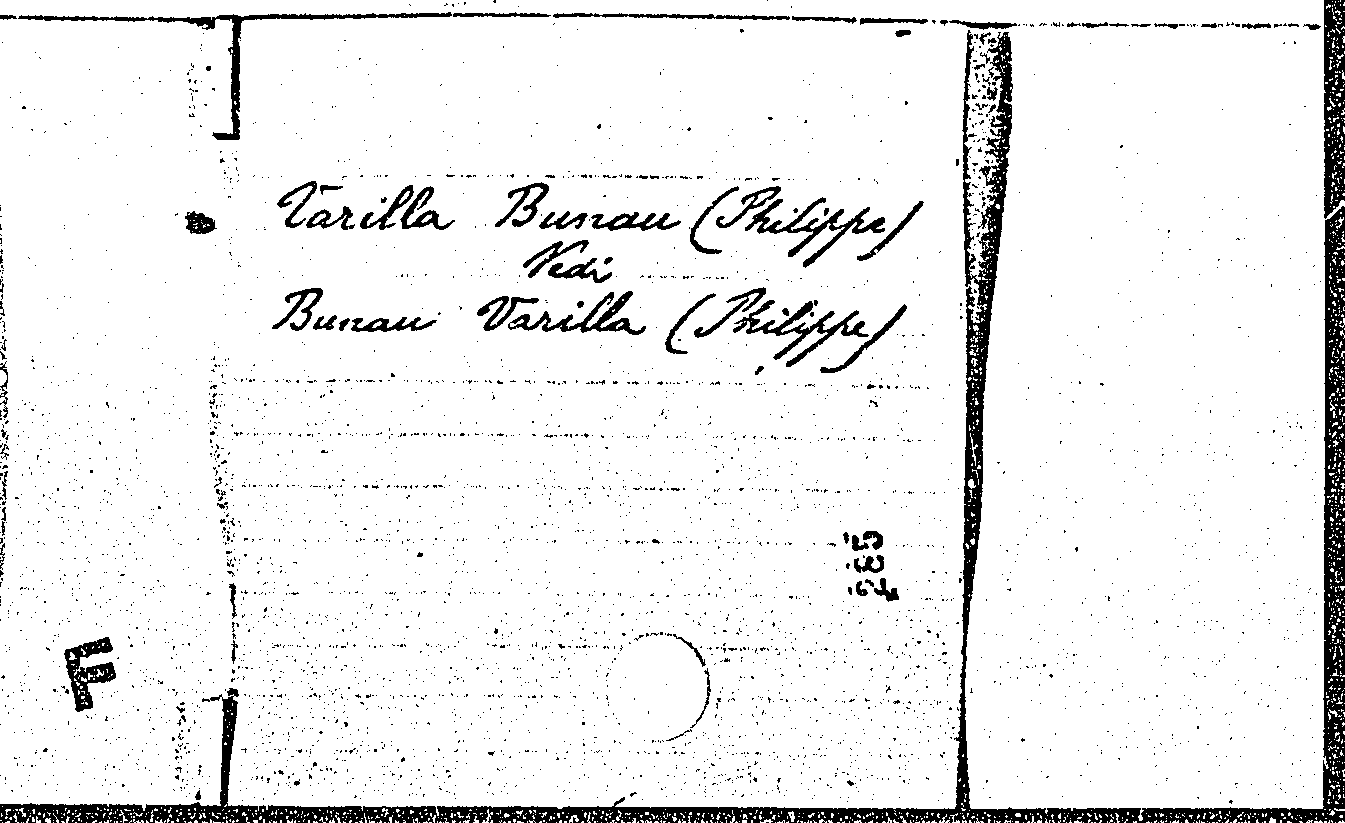 Varilla Bunau (Philippe)
Vedi
Bunau Varilla (Philippe)
F